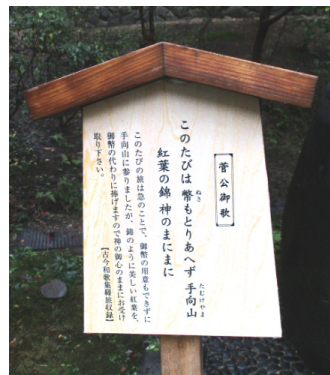 菅公御歌
このたびは 幣もとりあへず 手向山
紅葉の錦 神のまにまに
このたびの旅は急のことで、御幣の用意もできずに
手向山に参りましたが、錦のように美しい紅葉を、
御幣の代わりに捧げますので神の御心のままにお受け
取り下さい。
【古今和歌集羇旅収録】
ぬさ
たむけやま